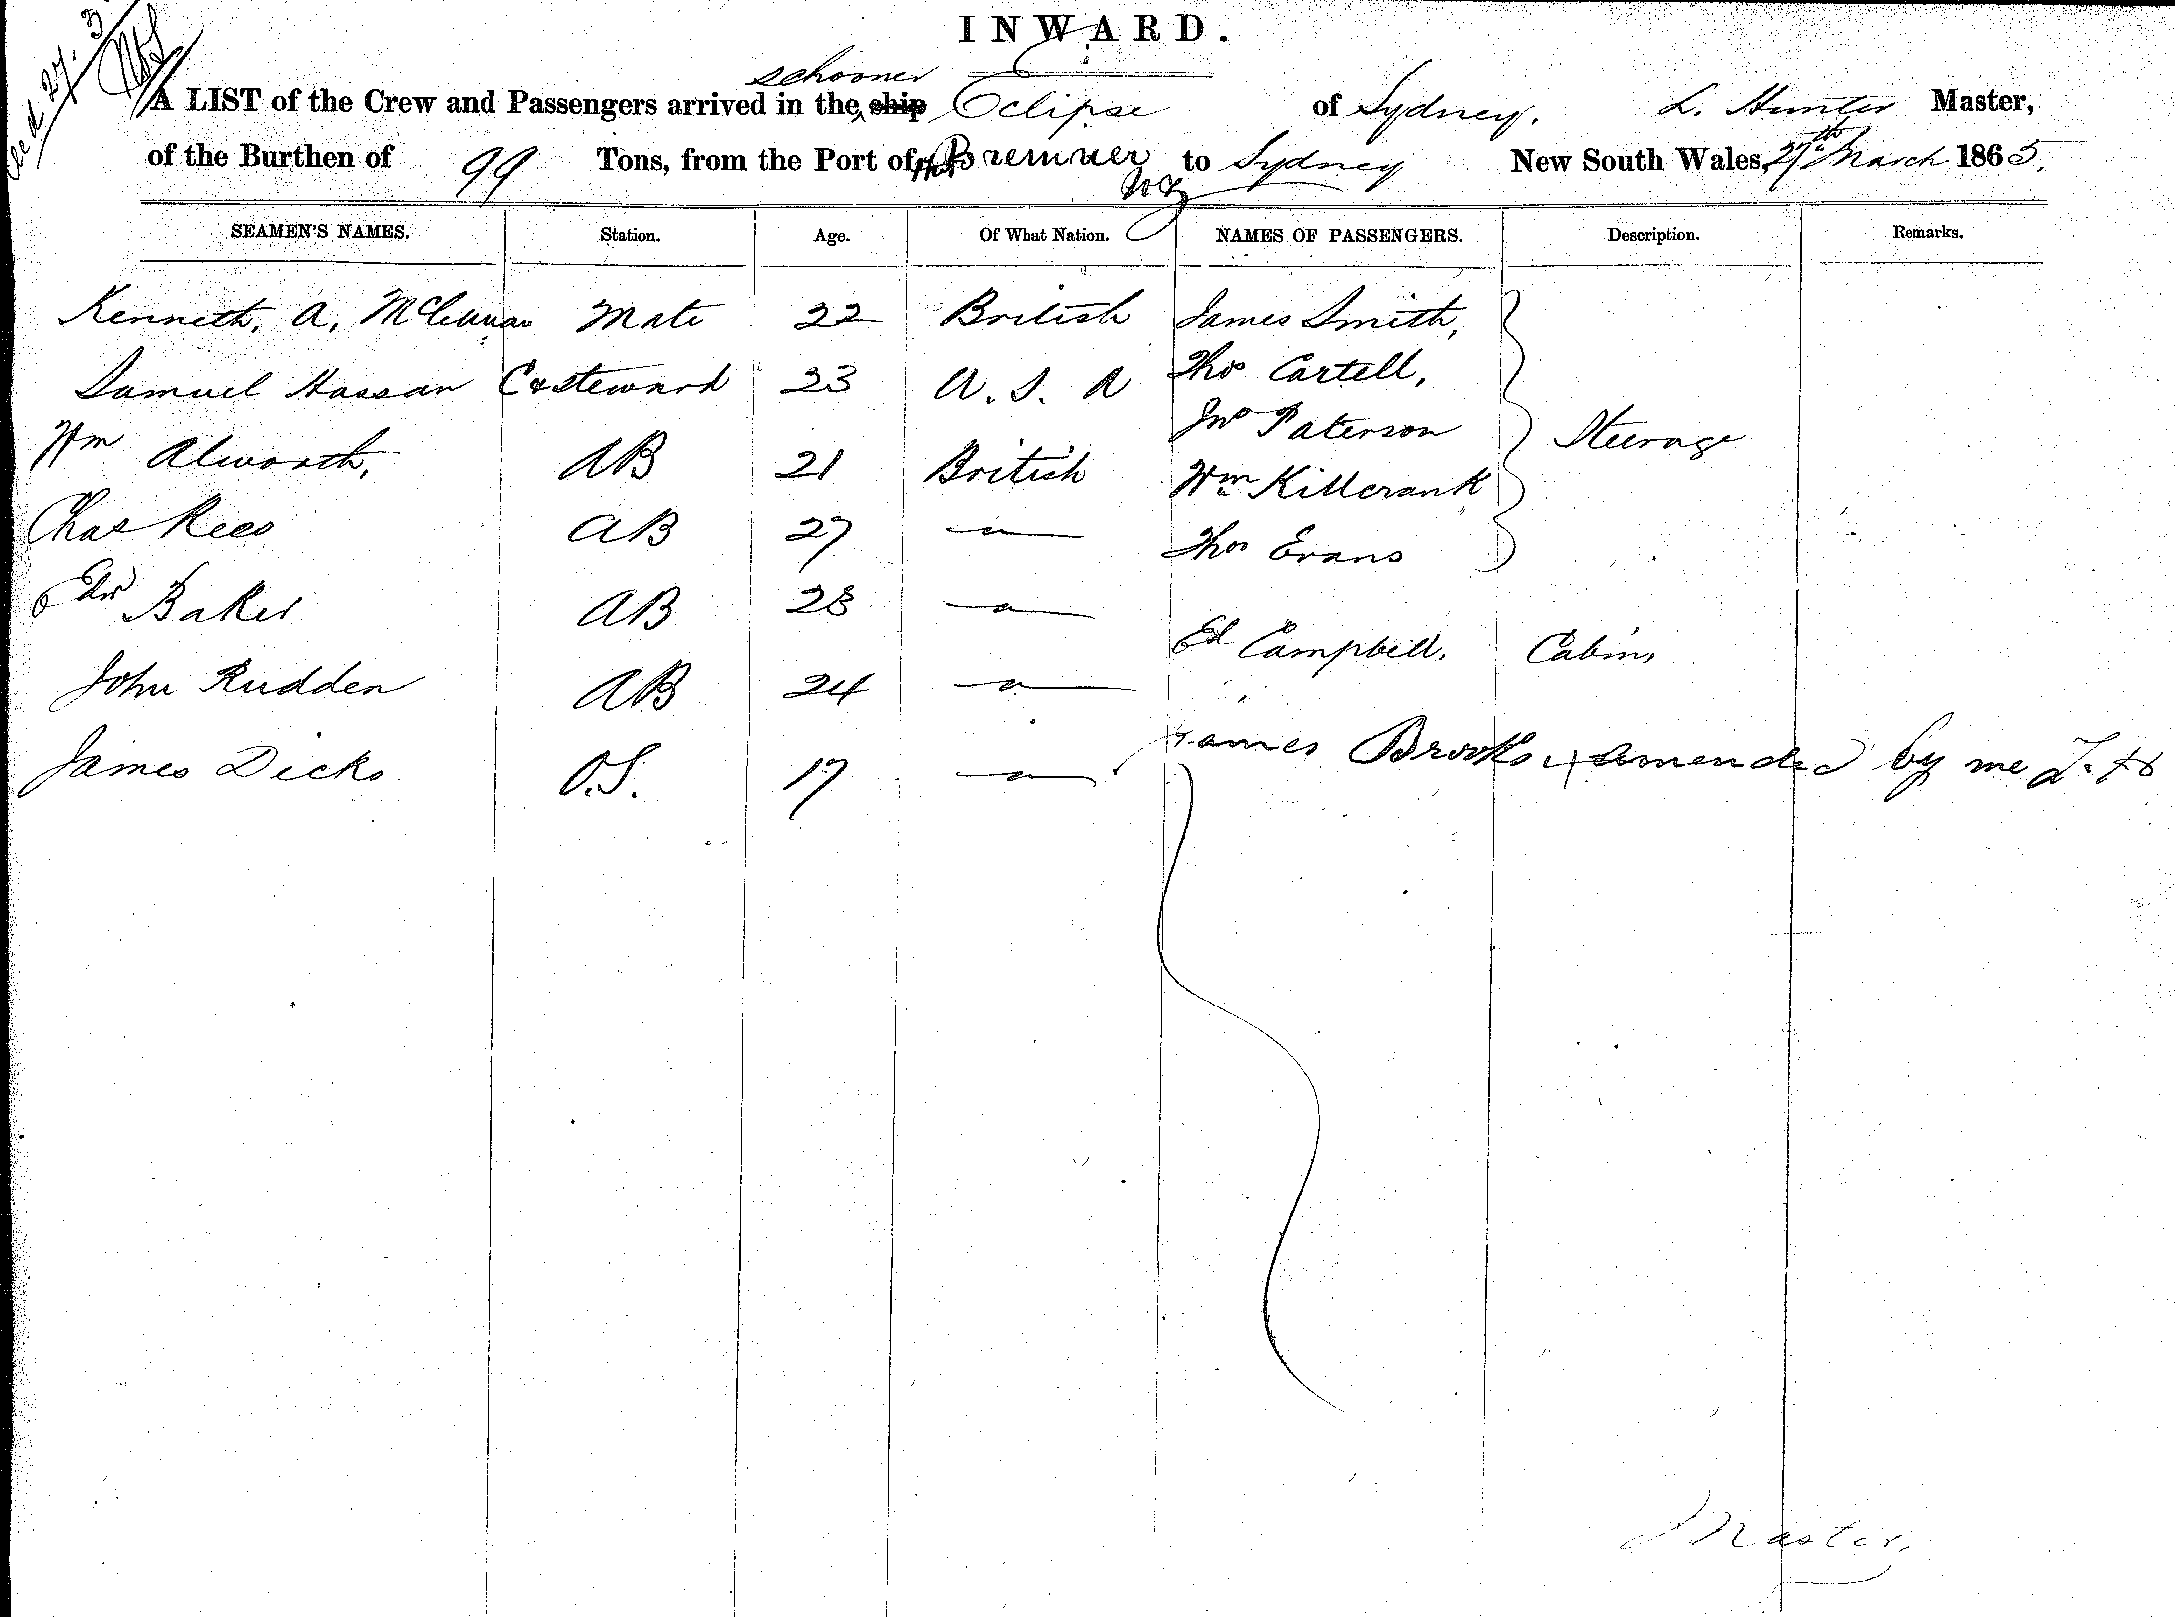 INWARD.
schooner
A LIST of the Crew and Passengers arrived in the, ship Eclipse of Sydney. L. Hunter Master,
of the Burthen of 99 Tons, from the Port of Bremner to Sydney New South Wales, 27th March 1865.
SEAMEN'S NAMES. Station. Age. Of What Nation. NAMES OF PASSENGERS. Description. Remarks.
Kenneth, A, Mate 22 British James Smith,
Samuel Hassan C & Steward 23 Thos Cartell,
Jno Paterson Steerage
Wm Alworth, AB 21 British Wm Killcrank
Chas Rees AB 27 — " — Thos Evans
Edw Baker AB 28 — " —
Ed Campbell. Cabin,
John Rudden AB 24 — " —
James Dicks O.S. 17 — " — James Brooks, amended by me L. H
Master,